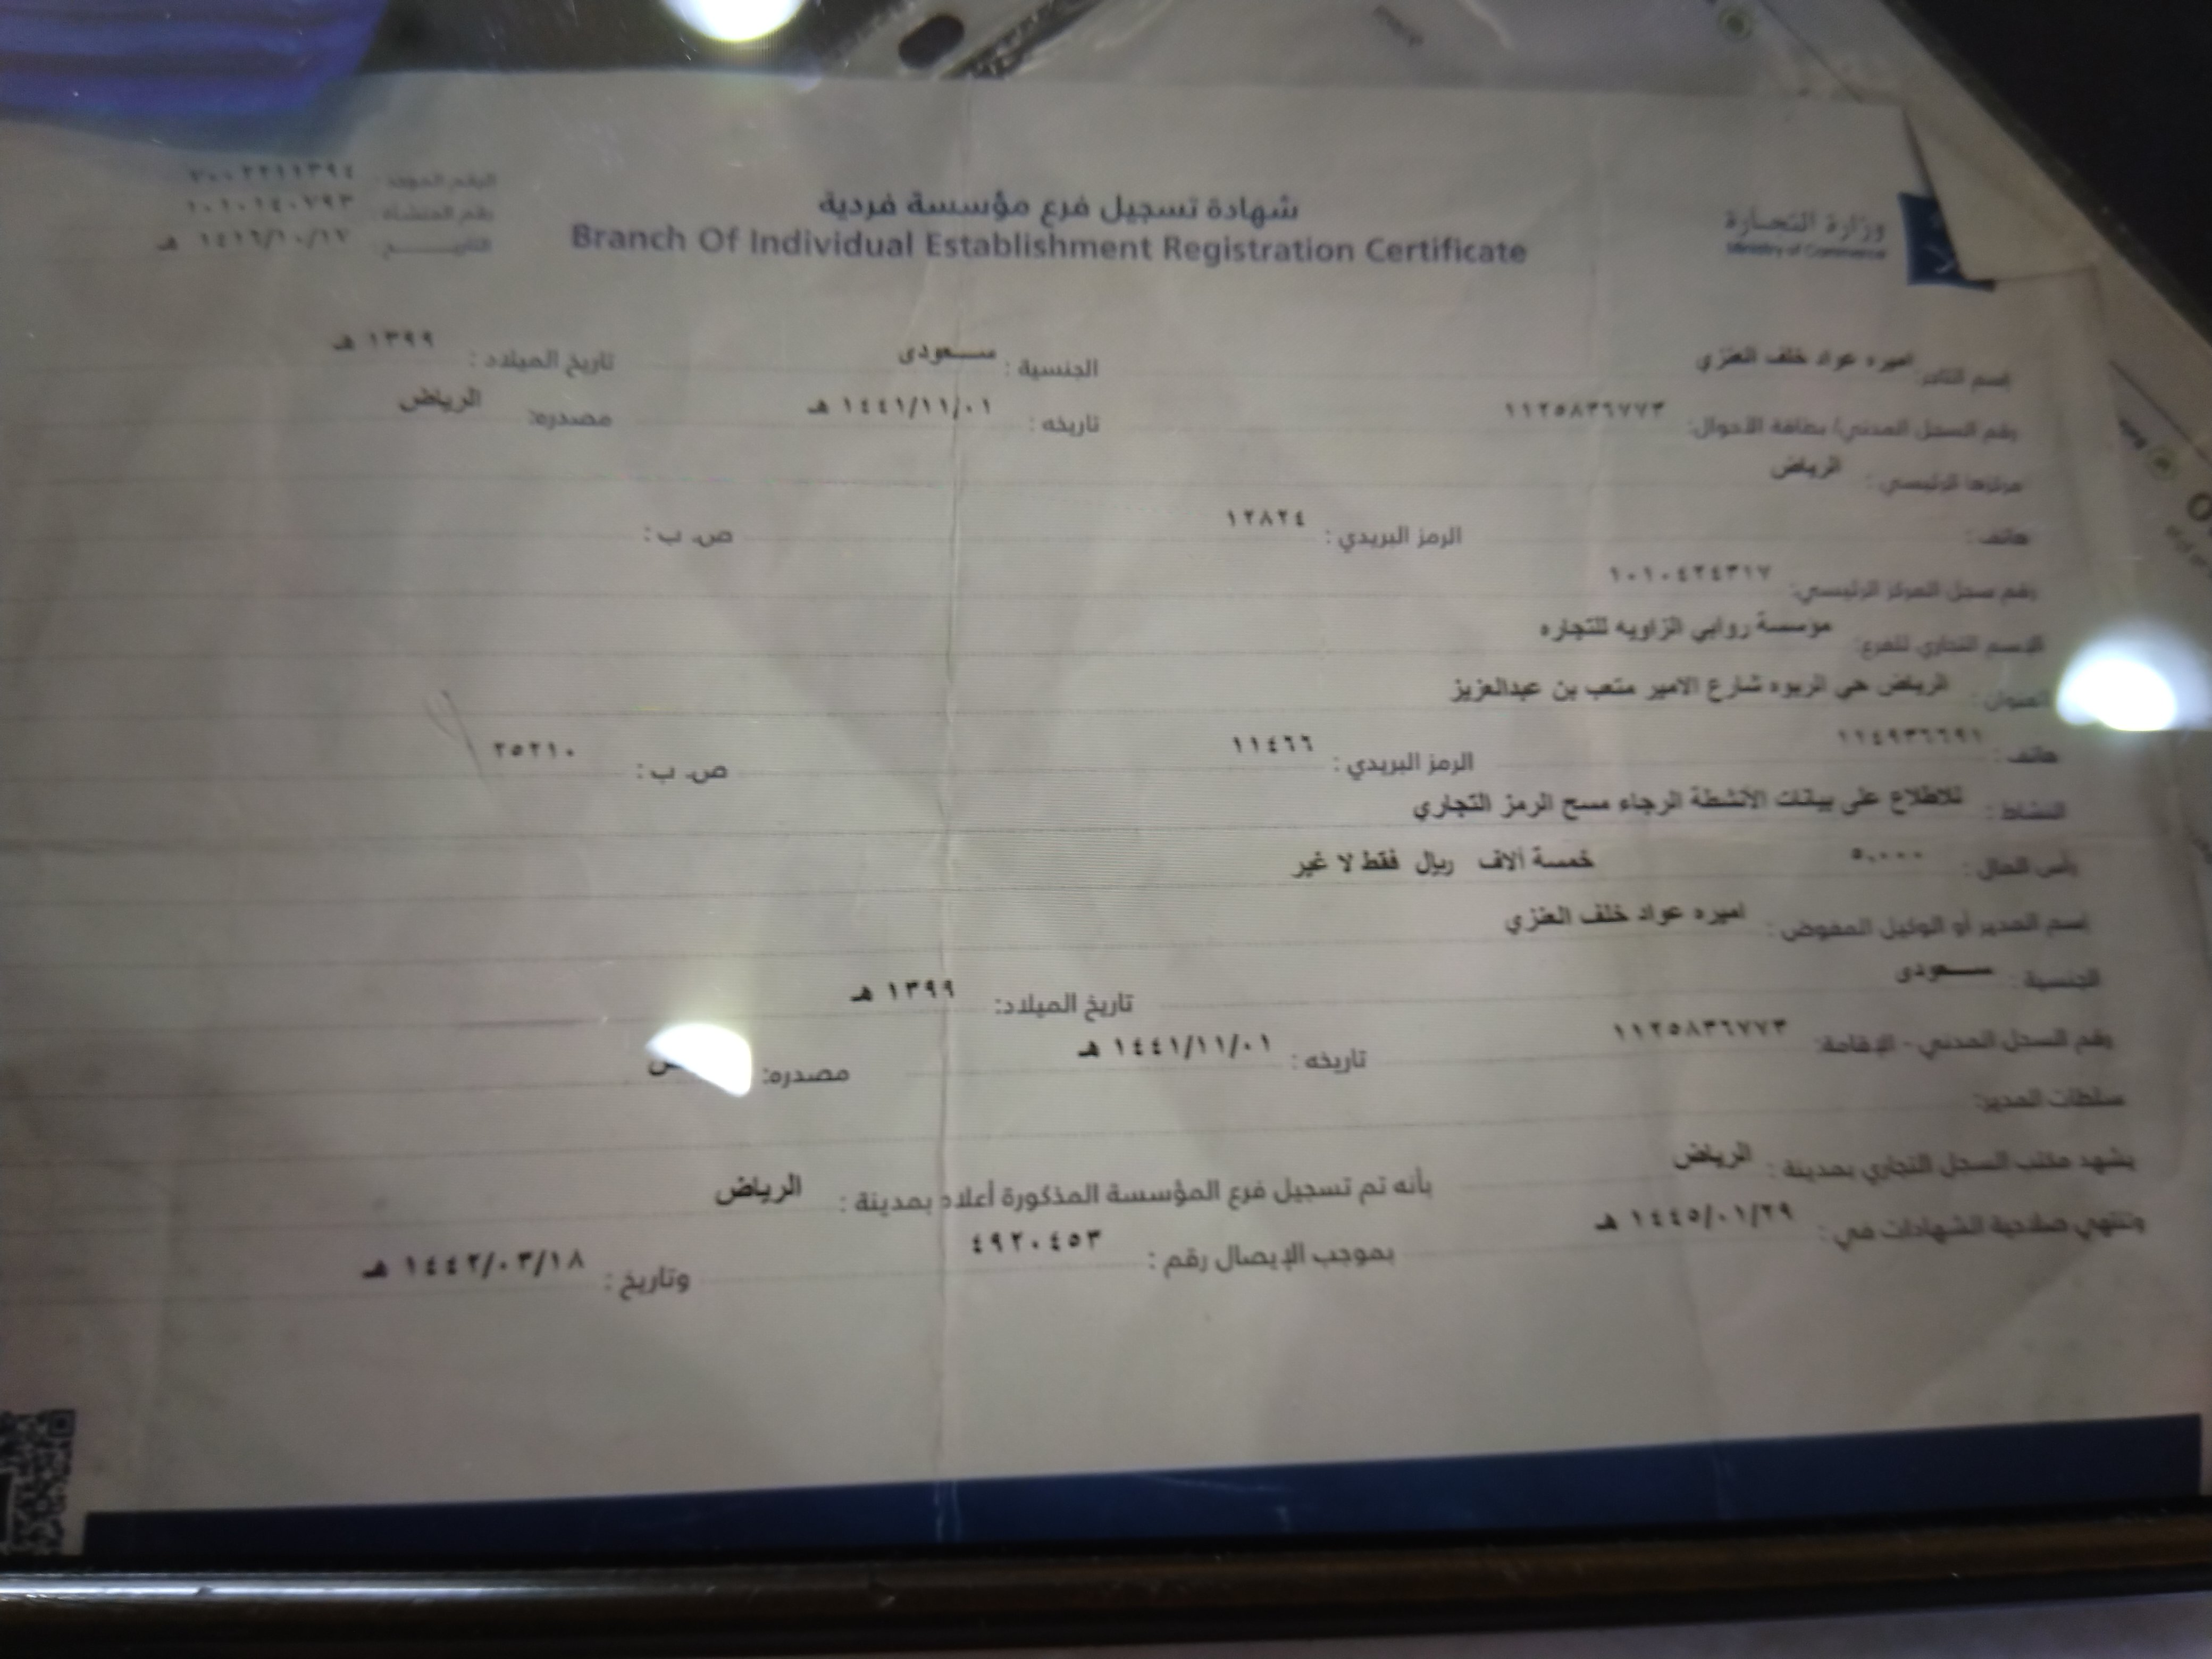 وزارة التجارة
Ministry of Commerce
شهادة تسجيل فرع مؤسسة فردية
Branch Of Individual Establishment Registration Certificate
الرقم الموحد :
رقم المنشأة : ١٠١٠١٤٠٧٩٣
التاريخ : ١٤١٦/١٠/١٢ هـ
اسم التاجر اميره عواد خلف العنزي الجنسية : سعودى تاريخ الميلاد : ١٣٩٩ هـ
رقم السجل المدني/ بطاقة الأحوال: ١١٢٥٨٣٦٧٧٣ تاريخه : ١٤٤١/١١/٠١ هـ مصدره: الرياض
مركزها الرئيسي : الرياض
هاتف : الرمز البريدي : ١٢٨٢٤ ص. ب :
رقم سجل المركز الرئيسي: ١٠١٠٤٢٤٣١٧
الإسم التجاري للفرع: موسسة روابي الزاويه للتجاره
العنوان : الرياض حي الربوه شارع الامير متعب بن عبدالعزيز
هاتف : ١١٤٩٣٦٦٩١ الرمز البريدي : ١١٤٦٦ ص. ب : ٢٥٢١٠
النشاط : للاطلاع على بيانات الأنشطة الرجاء مسح الرمز التجاري
رأس المال : ٥,٠٠٠ خمسة ألاف ريال فقط لا غير
إسم المدير أو الوكيل المفوض : اميره عواد خلف العنزي
الجنسية : سعودى تاريخ الميلاد: ١٣٩٩ هـ
رقم السجل المدني - الإقامة: ١١٢٥٨٣٦٧٧٣ تاريخه : ١٤٤١/١١/٠١ هـ مصدره:
سلطات المدير:
يشهد مكتب السجل التجاري بمدينة : الرياض بأنه تم تسجيل فرع المؤسسة المذكورة أعلاه بمدينة : الرياض
وتنتهي صلاحية الشهادات في : ١٤٤٥/٠١/٢٩ هـ بموجب الإيصال رقم : ٤٩٢٠٤٥٣ وتاريخ : ١٤٤٢/٠٣/١٨ هـ